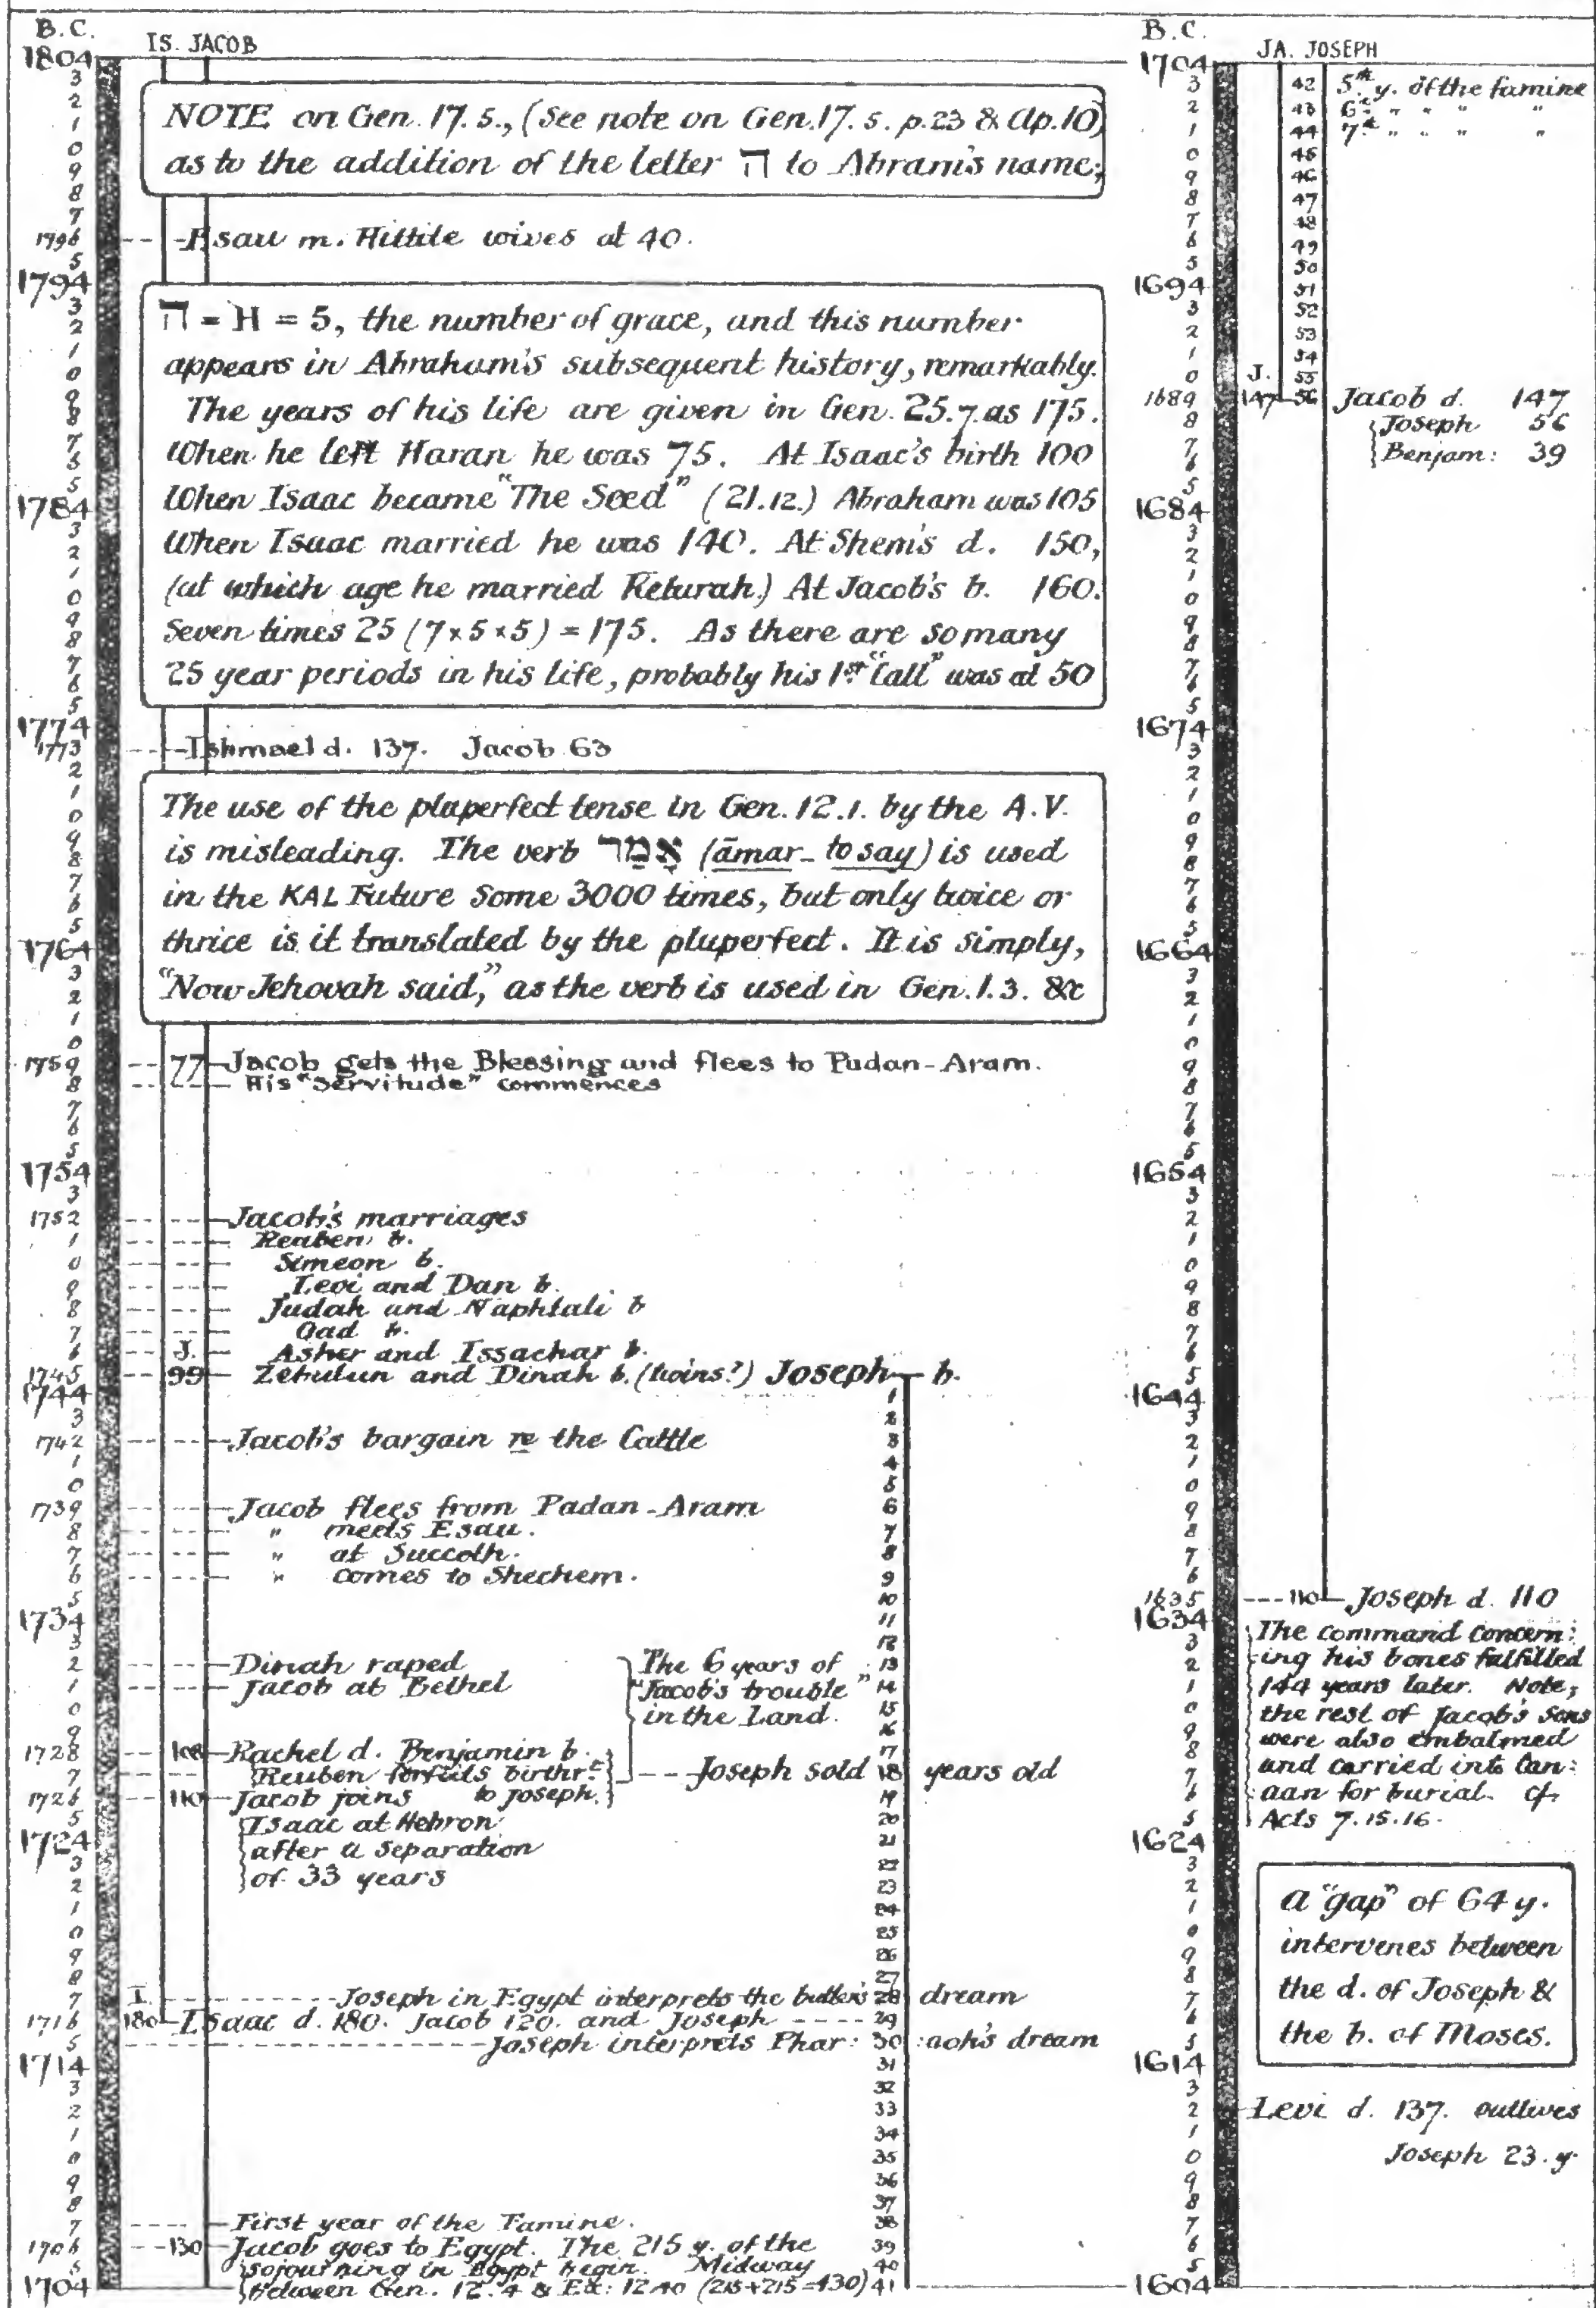 B.C.
IS. JACOB
1804
3
2
1
0
9
8
7
1796
5
1794
3
2
1
0
9
8
7
6
5
1784
3
2
1
0
9
8
7
6
5
1774
1773
2
1
0
9
8
7
6
5
1764
3
2
1
0
1759
8
7
6
5
1754
3
1752
1
0
9
8
7
6
1745
1744
3
1742
1
0
1739
8
7
6
5
1734
3
2
1
0
9
1728
7
1726
5
1724
3
2
1
0
9
8
7
1716
5
1714
3
2
1
0
9
8
7
1706
5
1704
NOTE on Gen. 17. 5., (See note on Gen. 17. 5. p.23 & Ap.10)
as to the addition of the letter ה to Abram's name;
Esau m. Hittite wives at 40.
ה = H = 5, the number of grace, and this number
appears in Abraham's subsequent history, remarkably.
The years of his life are given in Gen. 25.7. as 175.
When he left Haran he was 75. At Isaac's birth 100
When Isaac became "The Seed" (21.12.) Abraham was 105
When Isaac married he was 140. At Shem's d. 150,
(at which age he married Keturah.) At Jacob's b. 160.
Seven times 25 (7×5×5) = 175. As there are so many
25 year periods in his life, probably his 1st "Call" was at 50
Ishmael d. 137. Jacob 63
The use of the pluperfect tense in Gen. 12.1. by the A.V.
is misleading. The verb אָמַר (āmar - to say) is used
in the KAL Future some 3000 times, but only twice or
thrice is it translated by the pluperfect. It is simply,
"Now Jehovah said," as the verb is used in Gen. 1. 3. &c
77 Jacob gets the Blessing and flees to Padan-Aram.
His "Servitude" commences
Jacob's marriages
Reuben b.
Simeon b.
Levi and Dan b.
Judah and Naphtali b
Gad b.
J. Asher and Issachar b.
99 Zebulun and Dinah b. (twins?) Joseph b.
1
2
Jacob's bargain re the Cattle 3
4
5
Jacob flees from Padan-Aram 6
" meets Esau. 7
" at Succoth. 8
" comes to Shechem. 9
10
11
12
Dinah raped The 6 years of 13
Jacob at Bethel "Jacob's trouble" 14
in the Land. 15
16
108 Rachel d. Benjamin b. 17
Reuben forfeits birthrt Joseph sold 18 years old
110 Jacob joins to Joseph. 19
Isaac at Hebron 20
after a separation 21
22
of 33 years 23
24
25
26
27
I. Joseph in Egypt interprets the butler's 28 dream
180 Isaac d. 180. Jacob 120. and Joseph 29
Joseph interprets Phar: 30 :aoh's dream
31
32
33
34
35
36
37
First year of the Famine. 38
130 Jacob goes to Egypt. The 215 y. of the 39
sojourning in Egypt begin. Midway 40
between Gen. 12.4 & Ex: 12.40 (215+215=430) 41
B.C.
JA. JOSEPH
1704
3
2
1
0
9
8
7
6
5
1694
3
2
1
0
1689
8
7
6
5
1684
3
2
1
0
9
8
7
6
5
1674
3
2
1
0
9
8
7
6
5
1664
3
2
1
0
9
8
7
6
5
1654
3
2
1
0
9
8
7
6
5
1644
3
2
1
0
9
8
7
6
1635
1634
3
2
1
0
9
8
7
6
5
1624
3
2
1
0
9
8
7
6
5
1614
3
2
1
0
9
8
7
6
5
1604
42 5th y. of the famine
43 6th " " " "
44 7th " " " "
45
46
47
48
49
50
51
52
53
54
J. 55
147 56 Jacob d. 147
Joseph 56
Benjam: 39
110 Joseph d. 110
The command concern:
ing his bones fulfilled
144 years later. Note,
the rest of Jacob's Sons
were also embalmed
and carried into Can:
aan for burial. cf.
Acts 7.15.16.
A "gap" of 64 y.
intervenes between
the d. of Joseph &
the b. of Moses.
Levi d. 137. outlives
Joseph 23. y